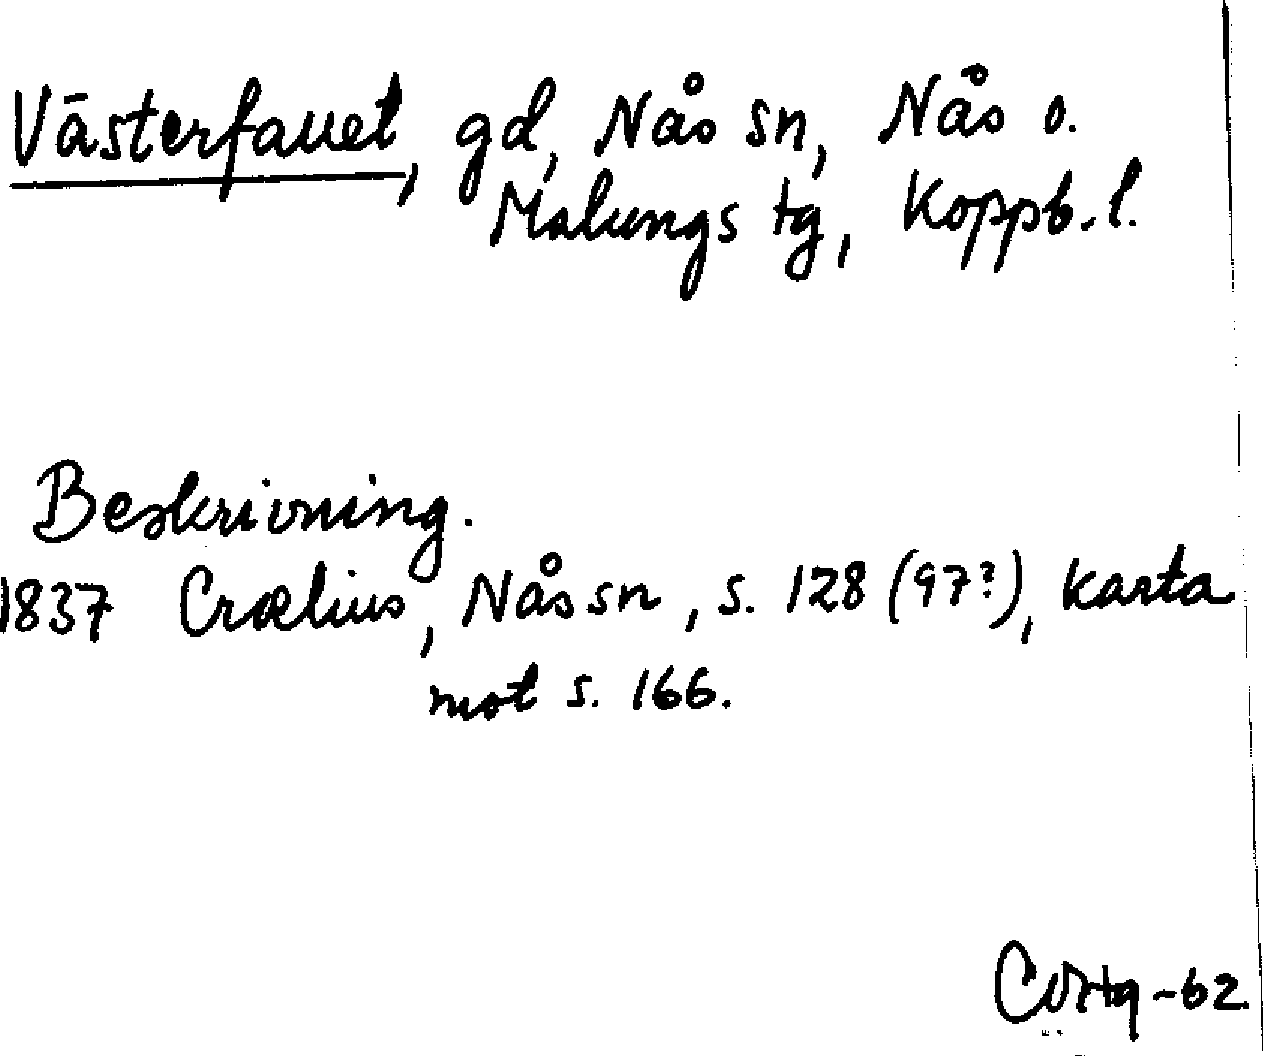 Västerfallet, gd, Nås sn, Nås o.
Malungs tg, Koppb. l.
Beskrivning.
1837 Crælius, Nås sn, s. 128 (97?), karta
mot s. 166.
-62